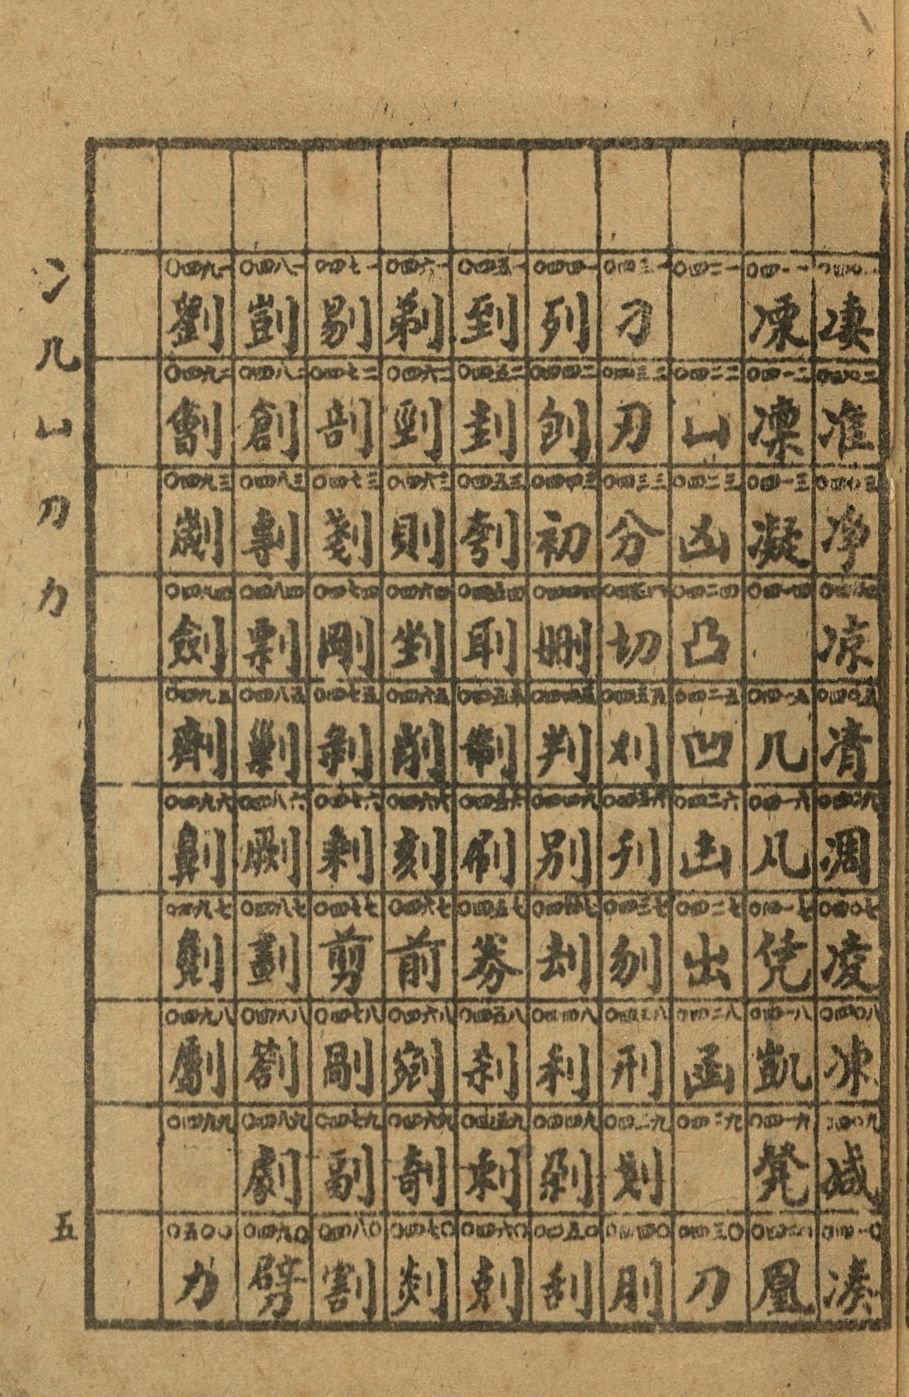 〇四〇一 凄 〇四〇二 准 〇四〇三 净 〇四〇四 凉 〇四〇五 凊 〇四〇六 凋 〇四〇七 凌 〇四〇八 凍 〇四〇九 减 〇四一〇 凑
〇四一一 凓 〇四一二 凜 〇四一三 凝 〇四一四 〇四一五 几 〇四一六 凡 〇四一七 凭 〇四一八 凱 〇四一九 凳 〇四二〇 凰
〇四二一 〇四二二 凵 〇四二三 凶 〇四二四 凸 〇四二五 凹 〇四二六 凷 〇四二七 出 〇四二八 函 〇四二九 〇四三〇 刀
〇四三一 刁 〇四三二 刃 〇四三三 分 〇四三四 切 〇四三五 刈 〇四三六 刊 〇四三七 刎 〇四三八 刑 〇四三九 划 〇四四〇 刖
〇四四一 列 〇四四二 刨 〇四四三 初 〇四四四 删 〇四四五 判 〇四四六 別 〇四四七 刦 〇四四八 利 〇四四九 剁 〇四五〇 刮
〇四五一 到 〇四五二 刲 〇四五三 刳 〇四五四 刵 〇四五五 制 〇四五六 刷 〇四五七 券 〇四五八 刹 〇四五九 刺 〇四六〇 剋
〇四六一 剃 〇四六二 剄 〇四六三 則 〇四六四 剉 〇四六五 削 〇四六六 刻 〇四六七 前 〇四六八 剜 〇四六九 剞 〇四七〇 剡
〇四七一 剔 〇四七二 剖 〇四七三 剗 〇四七四 剛 〇四七五 剝 〇四七六 剩 〇四七七 剪 〇四七八 剮 〇四七九 副 〇四八〇 割
〇四八一 剴 〇四八二 創 〇四八三 剸 〇四八四 剽 〇四八五 剿 〇四八六 劂 〇四八七 劃 〇四八八 劄 〇四八九 劇 〇四九〇 劈
〇四九一 劉 〇四九二 劊 〇四九三 劌 〇四九四 劍 〇四九五 劑 〇四九六 劓 〇四九七 劖 〇四九八 〇四九九 〇五〇〇 力
冫几凵刀力
五